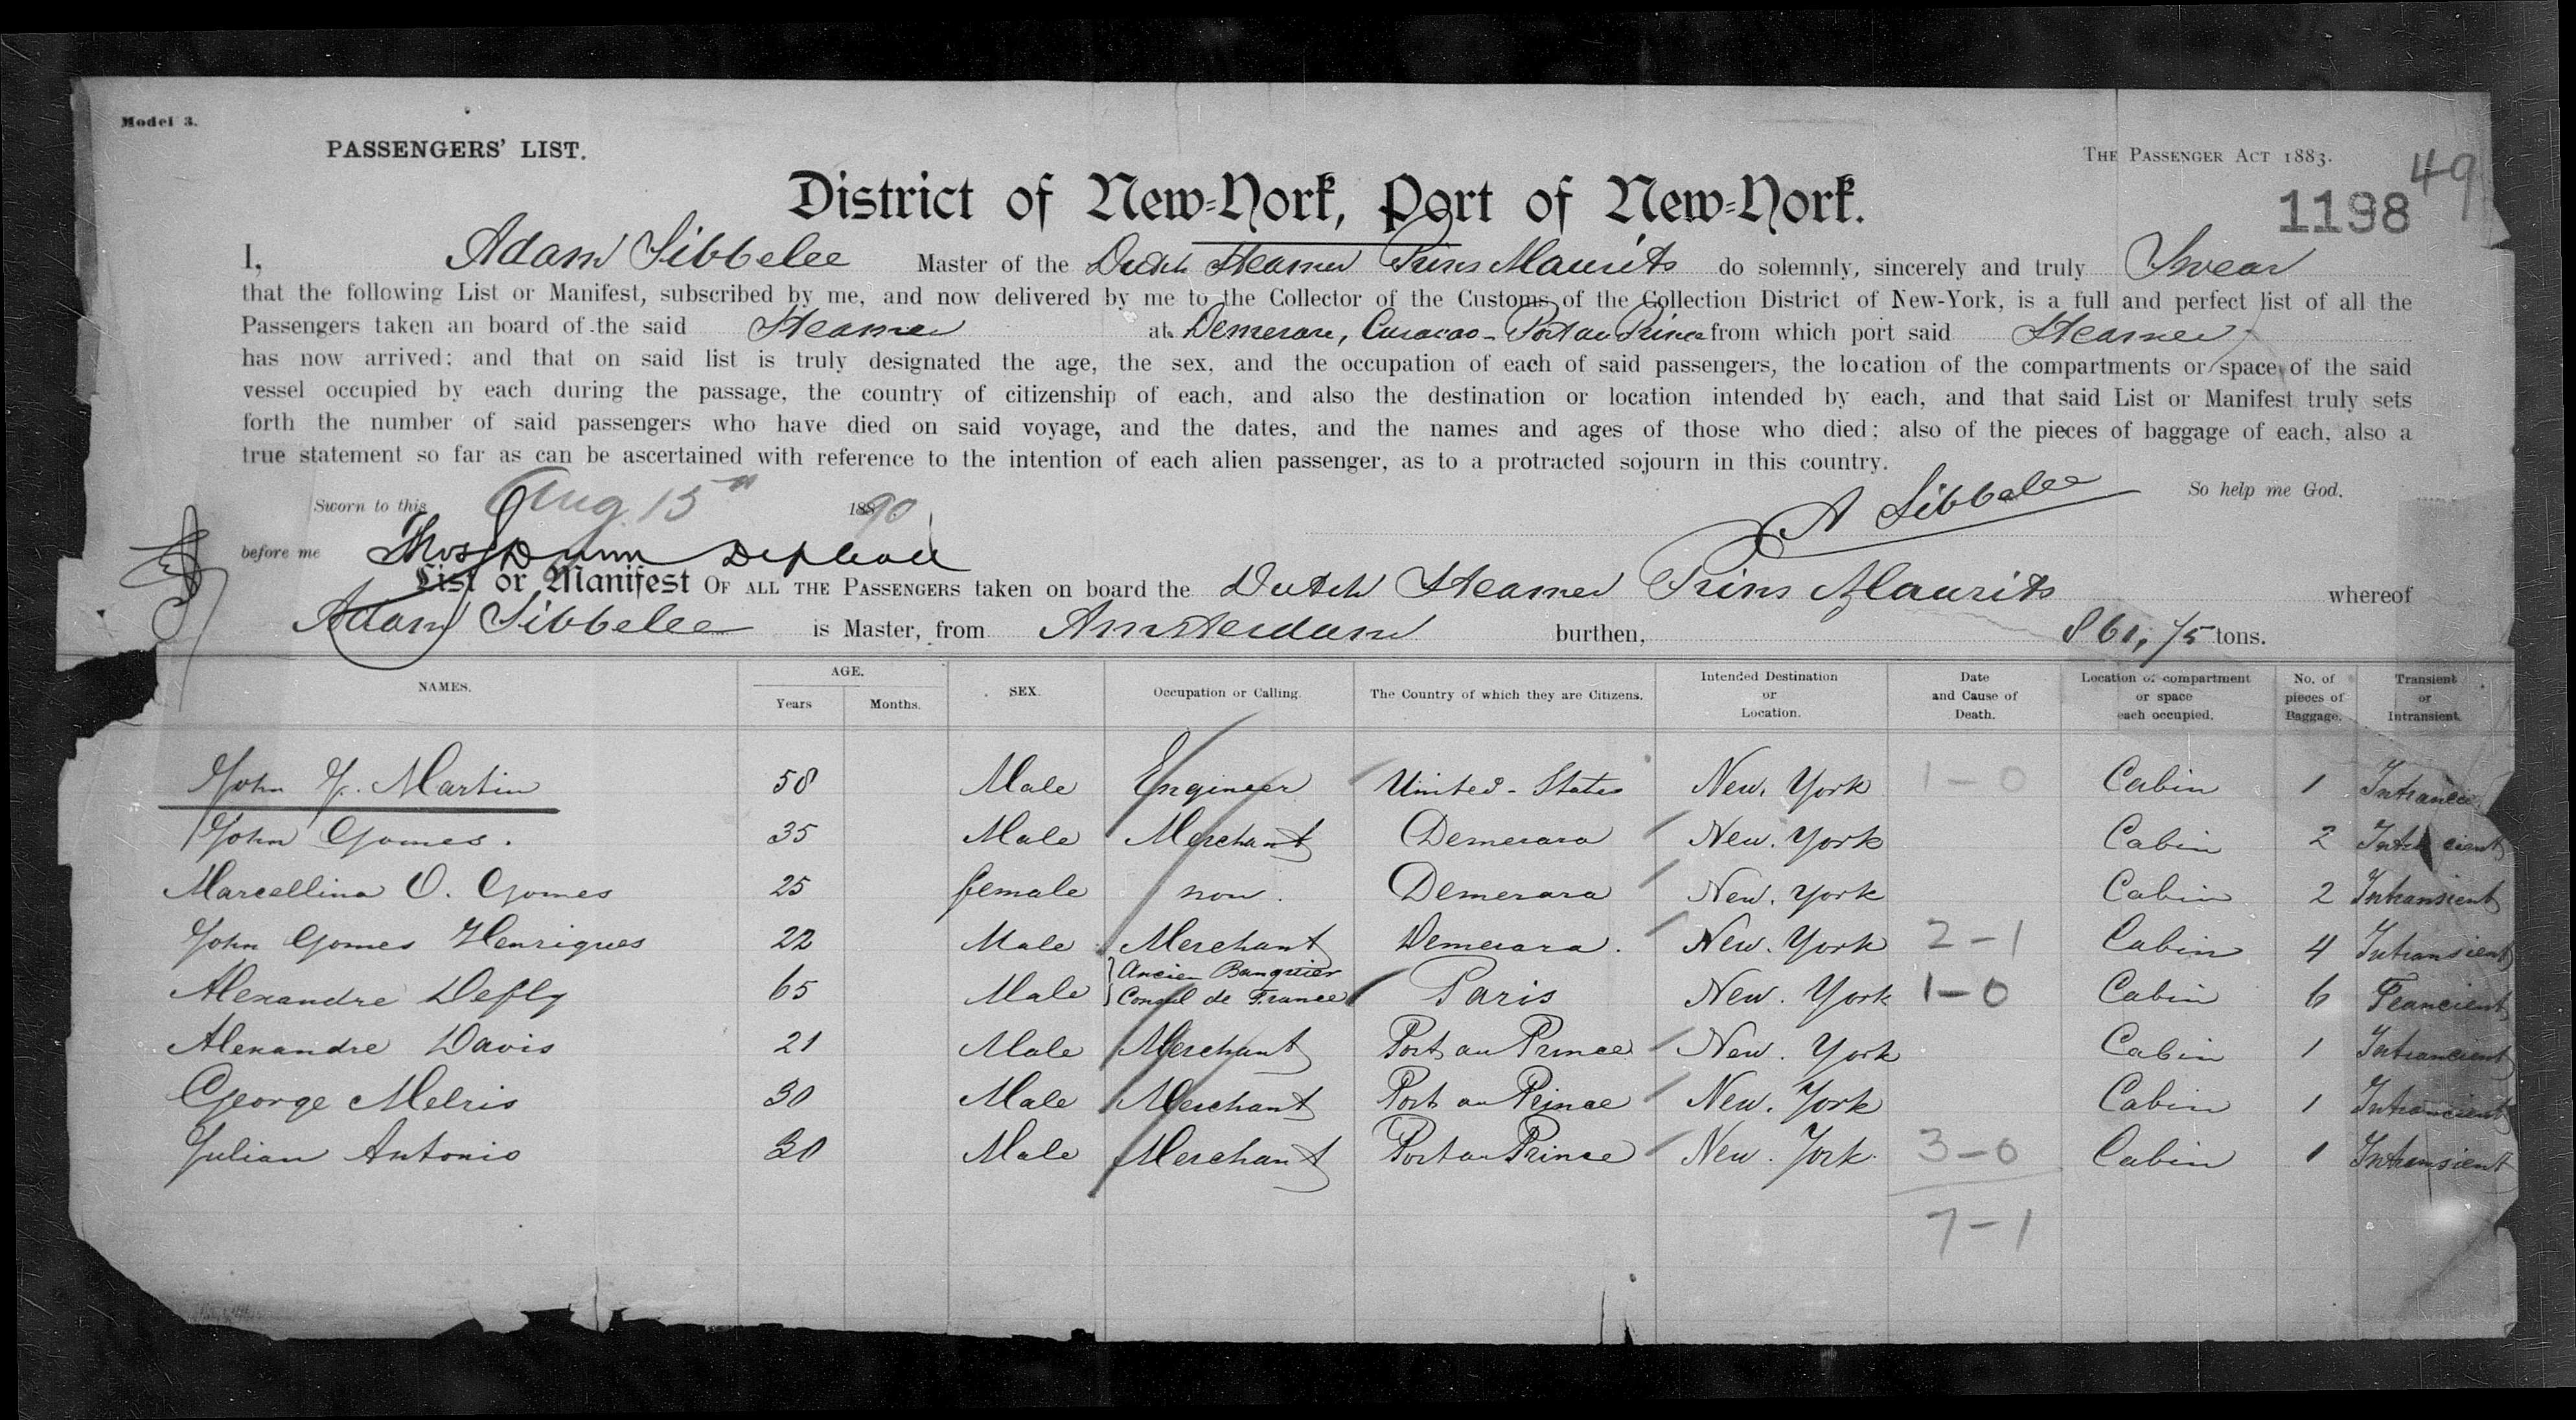 Model 3.
PASSENGERS' LIST.
THE PASSENGER ACT 1883.
49
1198
District of New=York, Port of New=York.
I, Adam Sibbelee Master of the Dutch Steamer Prins Maurits do solemnly, sincerely and truly Swear
that the following List or Manifest, subscribed by me, and now delivered by me to the Collector of the Customs of the Collection District of New-York, is a full and perfect list of all the
Passengers taken an board of the said Steamer at Demerara, Curacao - Port au Prince from which port said Steamer
has now arrived; and that on said list is truly designated the age, the sex, and the occupation of each of said passengers, the location of the compartments or space of the said
vessel occupied by each during the passage, the country of citizenship of each, and also the destination or location intended by each, and that said List or Manifest truly sets
forth the number of said passengers who have died on said voyage, and the dates, and the names and ages of those who died; also of the pieces of baggage of each, also a
true statement so far as can be ascertained with reference to the intention of each alien passenger, as to a protracted sojourn in this country.
Sworn to this Aug 15th 1890 A Sibbelee So help me God.
before me Thos Dunn
List or Manifest OF ALL THE PASSENGERS taken on board the Dutch Steamer Prins Maurits whereof
Adam Sibbelee is Master, from Amsterdam burthen, 861,75 tons.
NAMES. AGE. Years Months. SEX. Occupation or Calling. The Country of which they are Citizens. Intended Destination or Location. Date and Cause of Death. Location of compartment or space each occupied. No. of pieces of Baggage. Transient or Intransient.
John J. Martin 58 Male Engineer United-States New. York 1-0 Cabin 1 Intrancie
John Gomes. 35 Male Merchant Demerara New. York Cabin 2 Intrancient
Marcellina O. Gomes 25 female non. Demerara New. York Cabin 2 Intransient
John Gomes Henriques 22 Male Merchant Demerara. New. York 2-1 Cabin 4 Intransient
Alexandre Defly 65 Male Ancien Banquier Consul de France Paris New. York 1-0 Cabin 6 Trancient
Alexandre Davis 21 Male Merchant Port au Prince New. York Cabin 1 Intrancient
George Melris 30 Male Merchant Port au Prince New. York Cabin 1 Intrancient
Julian Antonio 30 Male Merchant Port au Prince New. York. 3-0 Cabin 1 Intransient
7-1